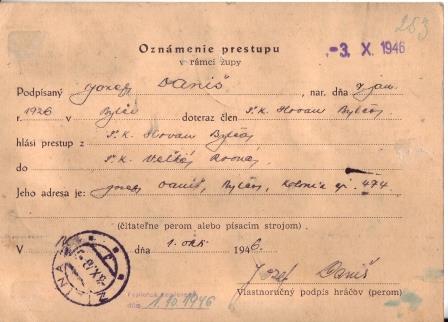 253
Oznámenie prestupu
v rámci župy
-3. X. 1946
Podpísaný Jozef Daniš, nar. dňa 7 jan.
r. 1926 v Bytči doteraz člen Š.K. Slovan Bytča
hlási prestup z Š.K. Slovan Bytča
do Š.K. Veľká
Jeho adresa je: Jozef Daniš, Bytča, Kolonia 474
(čitateľne perom alebo písacím strojom).
V dňa 1. okt. 1946.
Jozef Daniš
Vlastnoručný podpis hráčov (perom)
1 10 1946